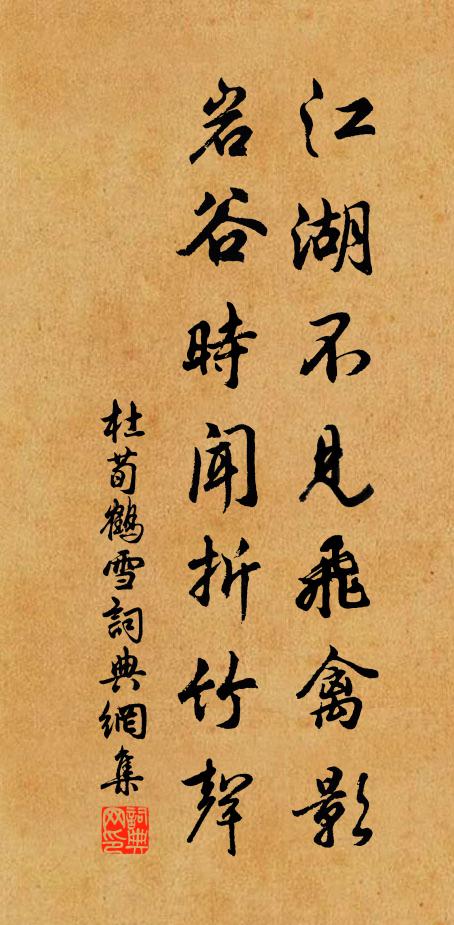 江湖不見飛禽影
岩谷時聞折竹聲
杜荀鶴雪詞典網集
詞典网印